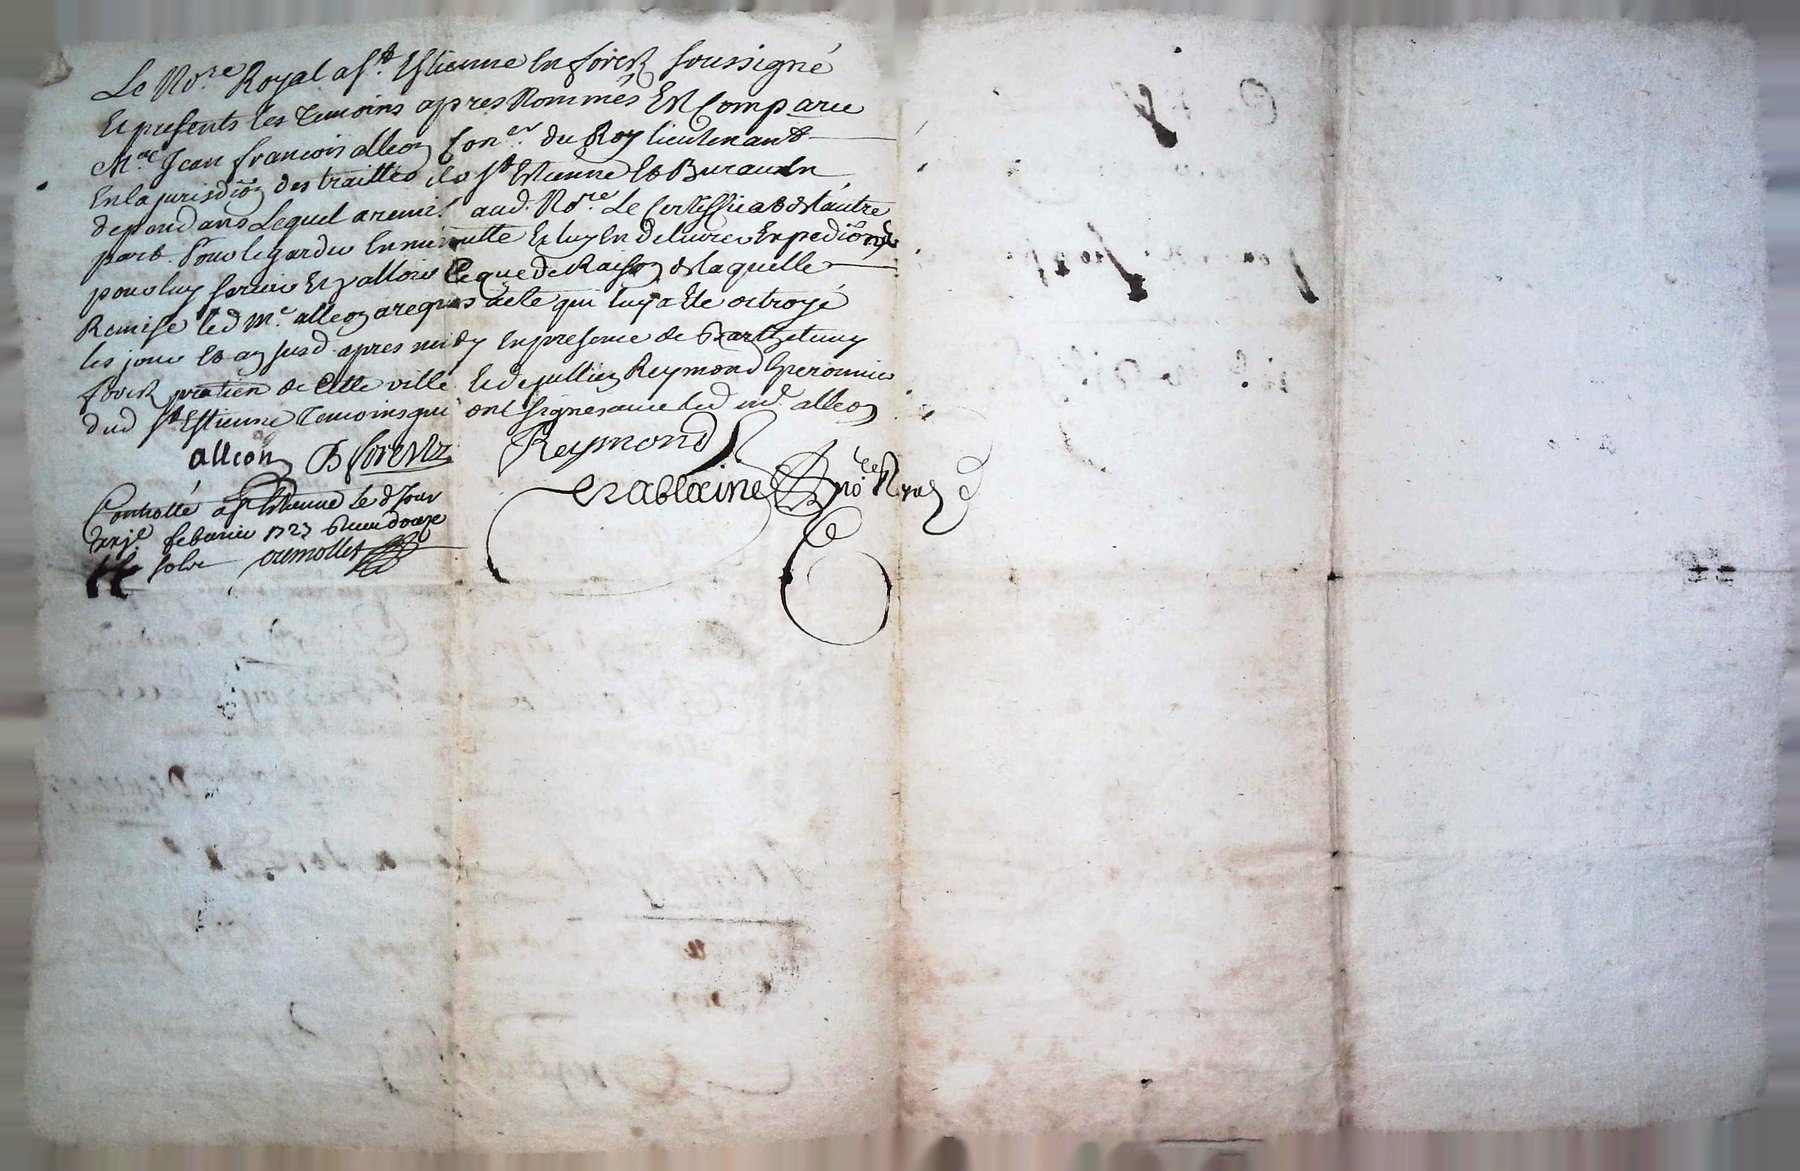 Le No.re Royal a St. Estienne en forestz soussigné
Et presents les temoins apres nommés Est Comparu
M.re Jean francois alleon Con.er du Roy lieutenant
En la jurisdiõn des traittes de St Estienne Et Bureaux En
dependans Lequel a remis aud. No.re Le Certifficat de l'autre
part. Pour le garder En minutte Et luy En delivrer Expediõns
pour luy servir Et valloir Ce que de Raison de laquelle
Remise led Me. alleon a requis acte qui luy a Eté octroyé
les jour Et an susd apres midy En presence de Barthelemy
forestz praticien de Cette ville Et de jullien Reymond Eperonnier
dud St Estienne temoins qui ont signés avec led me. alleon
alleon B forestz Reymond
Crablaine no.re Royal
Controllé a St Estienne le d Jour
febvrier 1723 Receu douze
solz